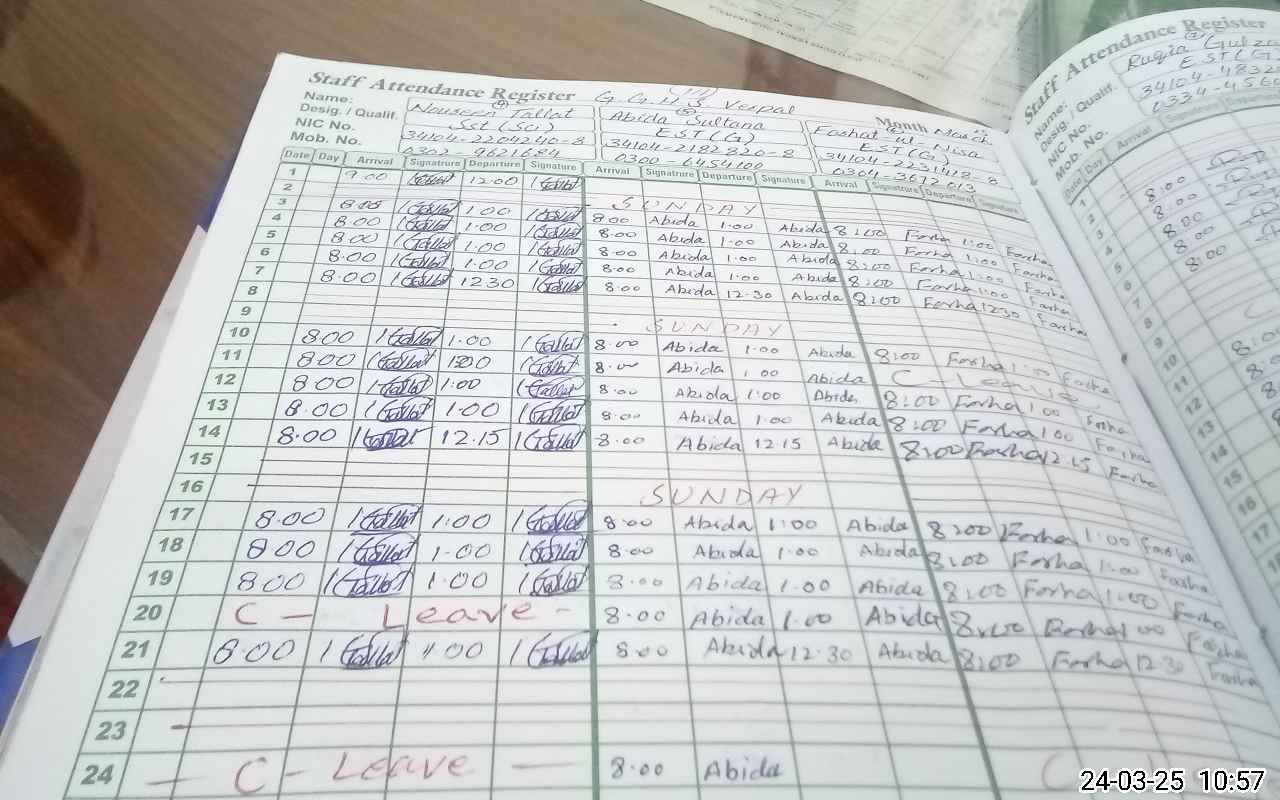 Staff Attendance Register G.G.H.S. Verpal
Month March
Name: Nouseen Tallat Abida Sultana Farhat-ul-Nisa
Desig. / Qualif. Sst (Sci) EST (G) EST (G)
NIC No. 34104-2604240-8 34104-2182820-8 34104-2231418-8
Mob. No. 0302-9621684 0300-6454100 0304-3672013
Date Day Arrival Signature Departure Signature Arrival Signature Departure Signature Arrival Signature Departure Signature
1 9:00 Tallat 12:00 Tallat
2 SUNDAY
3 8:00 Tallat 1:00 Tallat 8:00 Abida 1:00 Abida 8:00 Farha 1:00 Farha
4 8:00 Tallat 1:00 Tallat 8:00 Abida 1:00 Abida 8:00 Farha 1:00 Farha
5 8:00 Tallat 1:00 Tallat 8:00 Abida 1:00 Abida 8:00 Farha 1:00 Farha
6 8:00 Tallat 1:00 Tallat 8:00 Abida 1:00 Abida 8:00 Farha 1:00 Farha
7 8:00 Tallat 12:30 Tallat 8:00 Abida 12:30 Abida 8:00 Farha 12:30 Farha
8
9 SUNDAY
10 8:00 Tallat 1:00 Tallat 8:00 Abida 1:00 Abida 8:00 Farha 1:00 Farha
11 8:00 Tallat Tallat 8:00 Abida 1:00 Abida C-Leave
12 8:00 Tallat 1:00 Tallat 8:00 Abida 1:00 Abida 8:00 Farha 1:00 Farha
13 8:00 Tallat 1:00 Tallat 8:00 Abida 1:00 Abida 8:00 Farha 1:00 Farha
14 8:00 Tallat 12.15 Tallat 8:00 Abida 12.15 Abida 8:00 Farha 12.15 Farha
15
16 SUNDAY
17 8:00 Tallat 1:00 Tallat 8:00 Abida 1:00 Abida 8:00 Farha 1:00 Farha
18 8:00 Tallat 1:00 Tallat 8:00 Abida 1:00 Abida 8:00 Farha 1:00 Farha
19 8:00 Tallat 1:00 Tallat 8:00 Abida 1:00 Abida 8:00 Farha 1:00 Farha
20 C - Leave - 8:00 Abida 1:00 Abida 8:00 Farha 1:00 Farha
21 8:00 Tallat 1:00 Tallat 8:00 Abida 12:30 Abida 8:00 Farha 12:30 Farha
22
23
24 - C - Leave - 8:00 Abida C
Staff Attendance Register
Name: Ruqia Gulza
Desig. / Qualif. EST (G)
NIC No. 34104-4832
Mob. No. 0334-456
Date Day Arrival
1
2
3 8:00
4 8:00
5 8:00
6
7
8
9
10
11
12
13
14
15
16
17
24-03-25 10:57